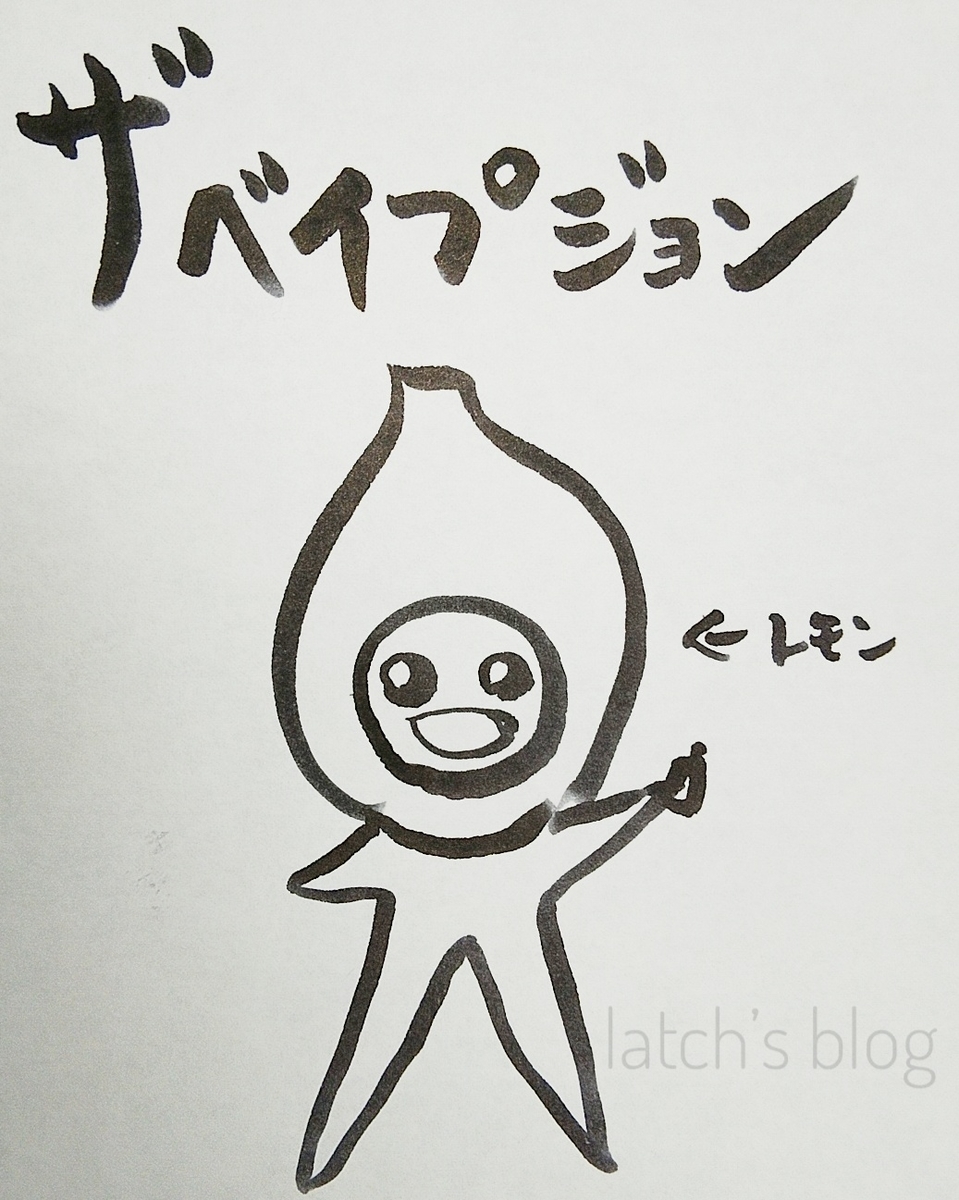 ザベイプジョン
←レモン
latch's blog